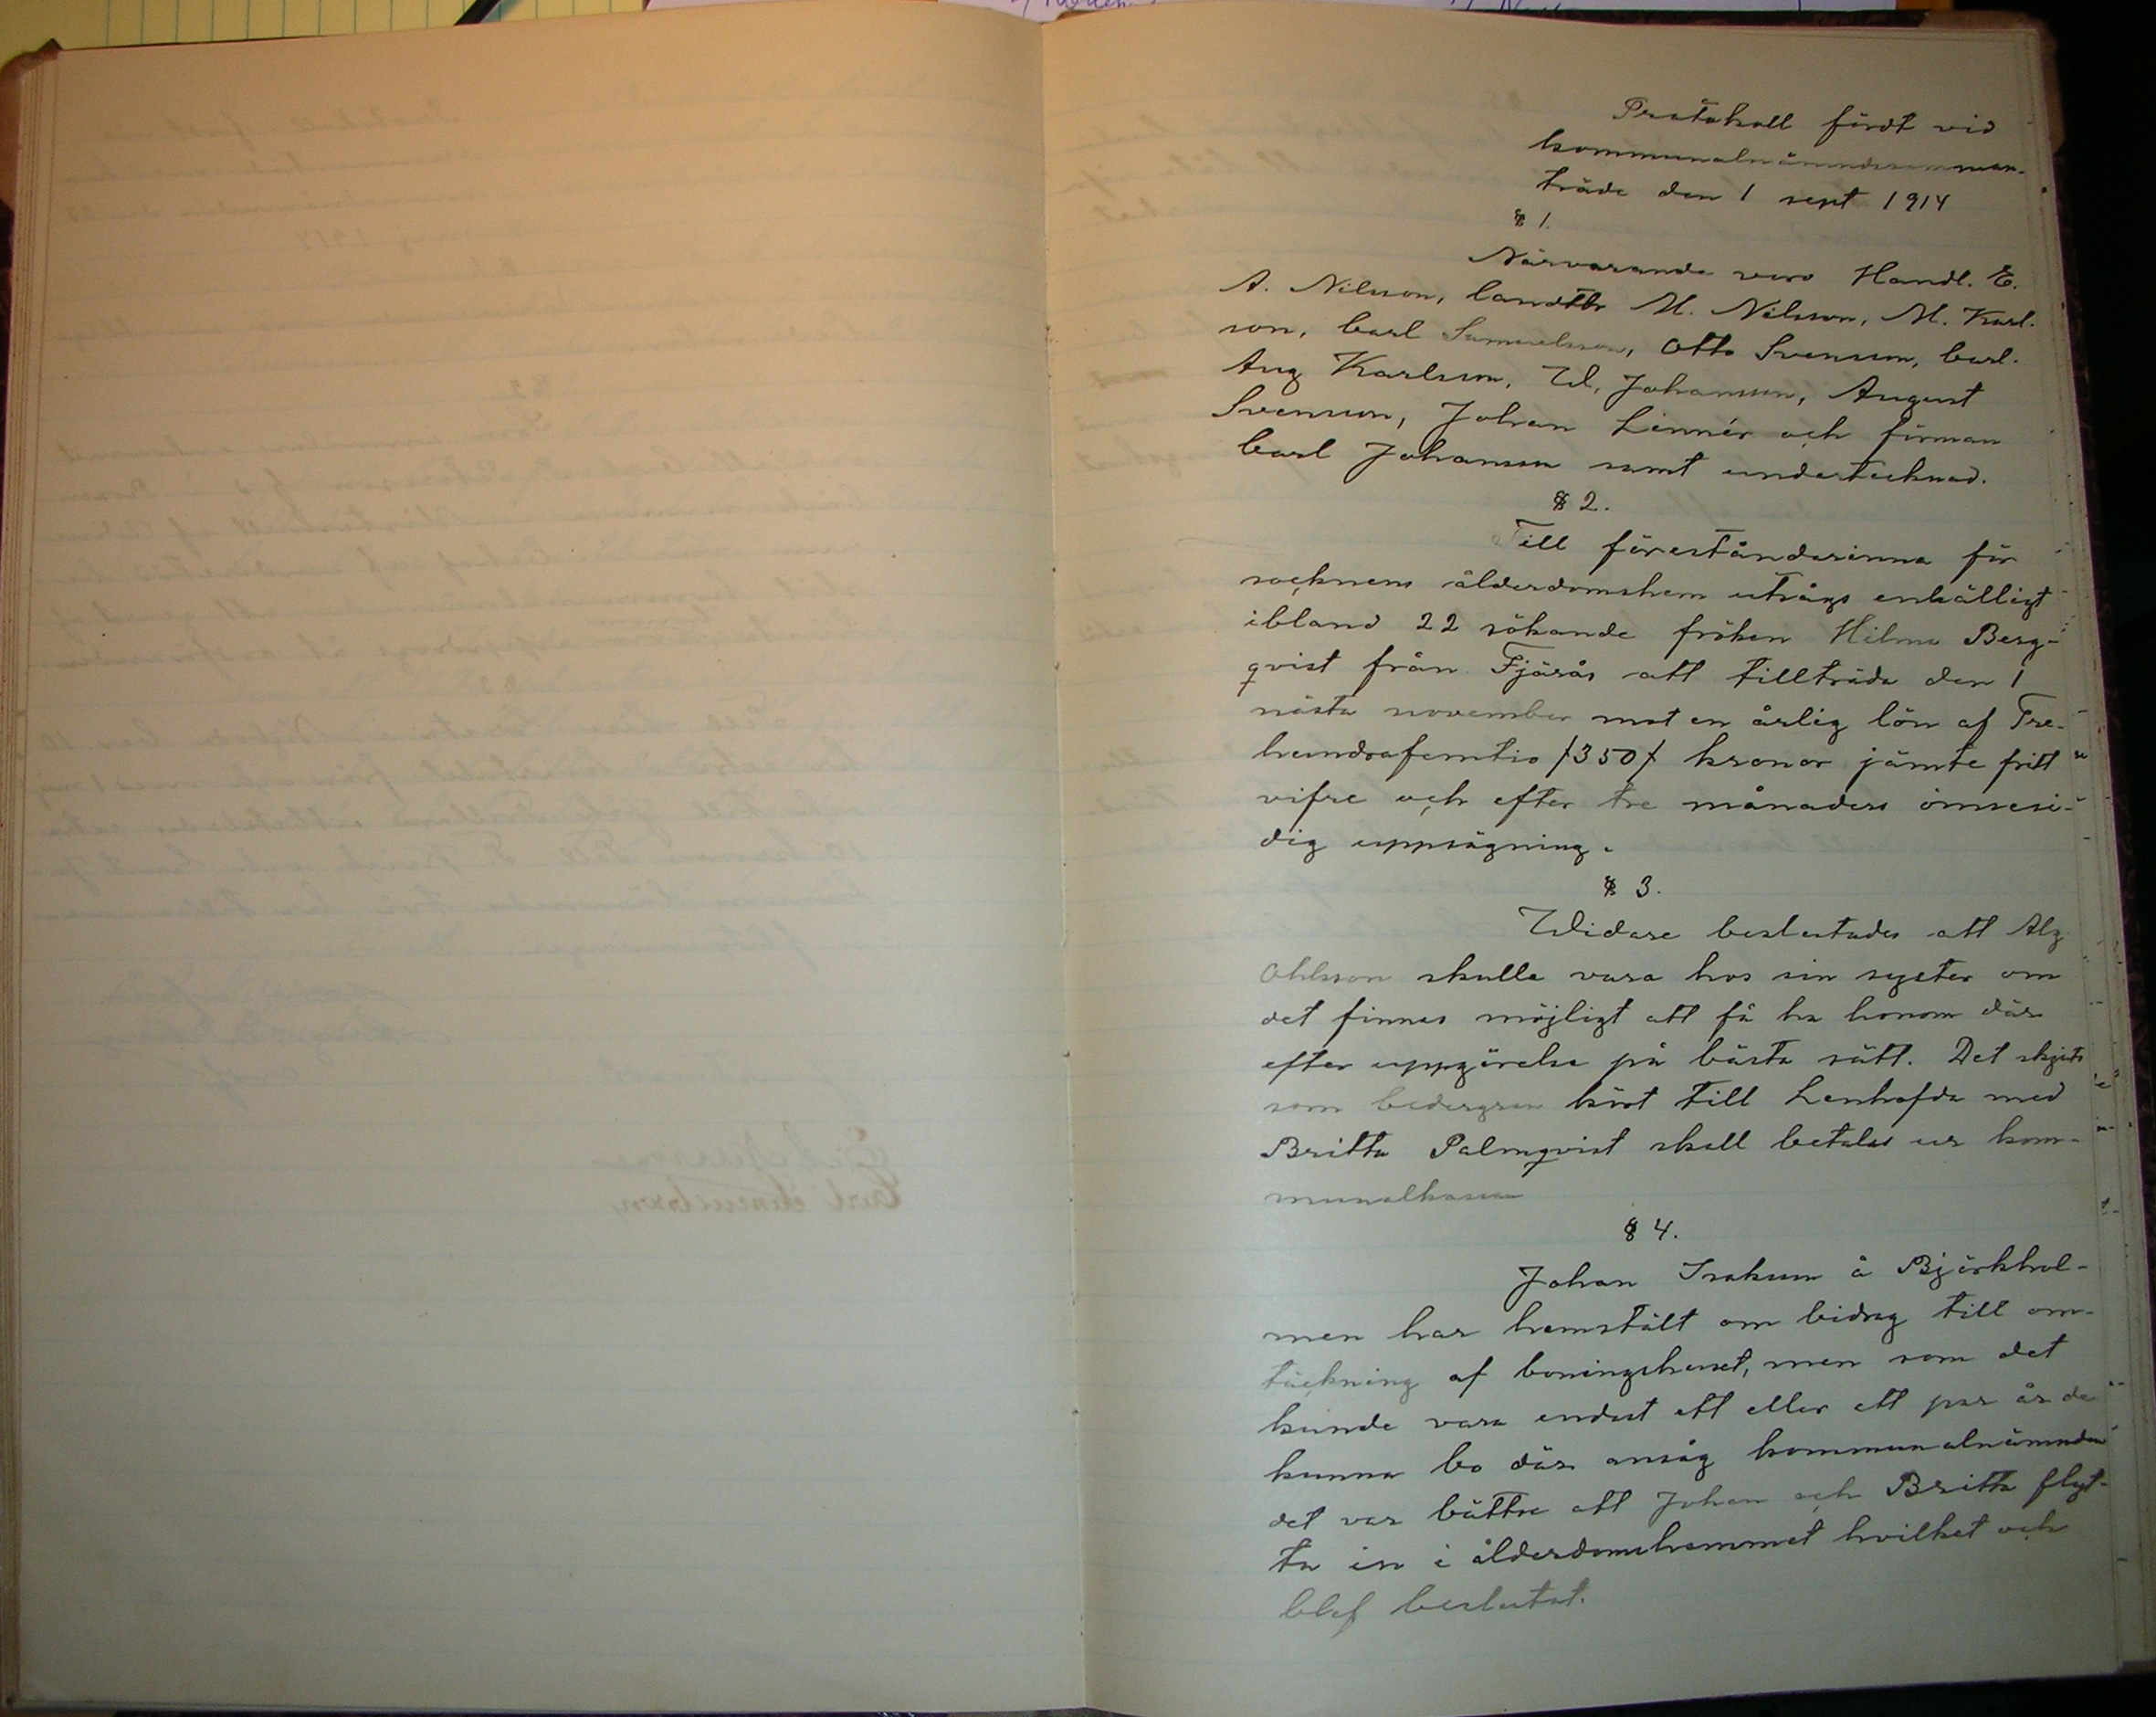 Protokoll fördt vid
kommunalnämndssamman-
träde den 1 sept 1914
§ 1.
Närvarande voro Handl. E.
A. Nilsson, landtbr M. Nilsson, M. Karl-
son, Carl Samuelsson, Otto Svensson, Carl
Aug Karlsson, W. Johansson, August
Svensson, Johan Linnér och förman
Carl Johansson samt undertecknad.
§ 2.
Till föreståndarinna för
socknens ålderdomshem utsågs enhälligt
ibland 22 sökande fröken Hilma Berg-
qvist från Fjärås att tillträda den 1
nästa november mot en årlig lön af Tre-
hundrafemtio /350/ kronor jämte fritt
vifre och efter tre månaders ömsesi-
dig uppsägning.
§ 3.
Widare beslutades att Alg
Ohlsson skulle vara hos sin syster om
det finnes möjligt att få ha honom där
efter uppgörelse på bästa sätt. Det skjuts
som Cedergren kört till Lenhofda med
Britta Palmqvist skall betalas ur kom-
munalkassan
§ 4.
Johan Isakson å Björkhol-
men har hemstält om bidrag till om-
täckning af boningshuset, men som det
kunde vara endast ett eller ett par år de
kunna bo där ansåg kommunalnämnden
det var bättre att Johan och Britta flyt-
ta in i ålderdomshemmet hvilket och
blef beslutat.